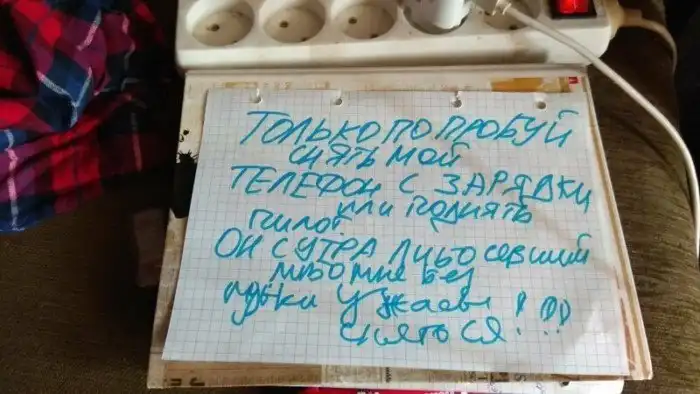 ТОЛЬКО ПОПРОБУЙ
СНЯТЬ МОЙ
ТЕЛЕФОН С ЗАРЯДКИ
ИЛИ ПОДНЯТЬ
ОН С УТРА ЛИБО СЕВШИЙ
ЛИБО МНЕ БЕЗ
УЖАСЫ
СНЯТСЯ!!!!